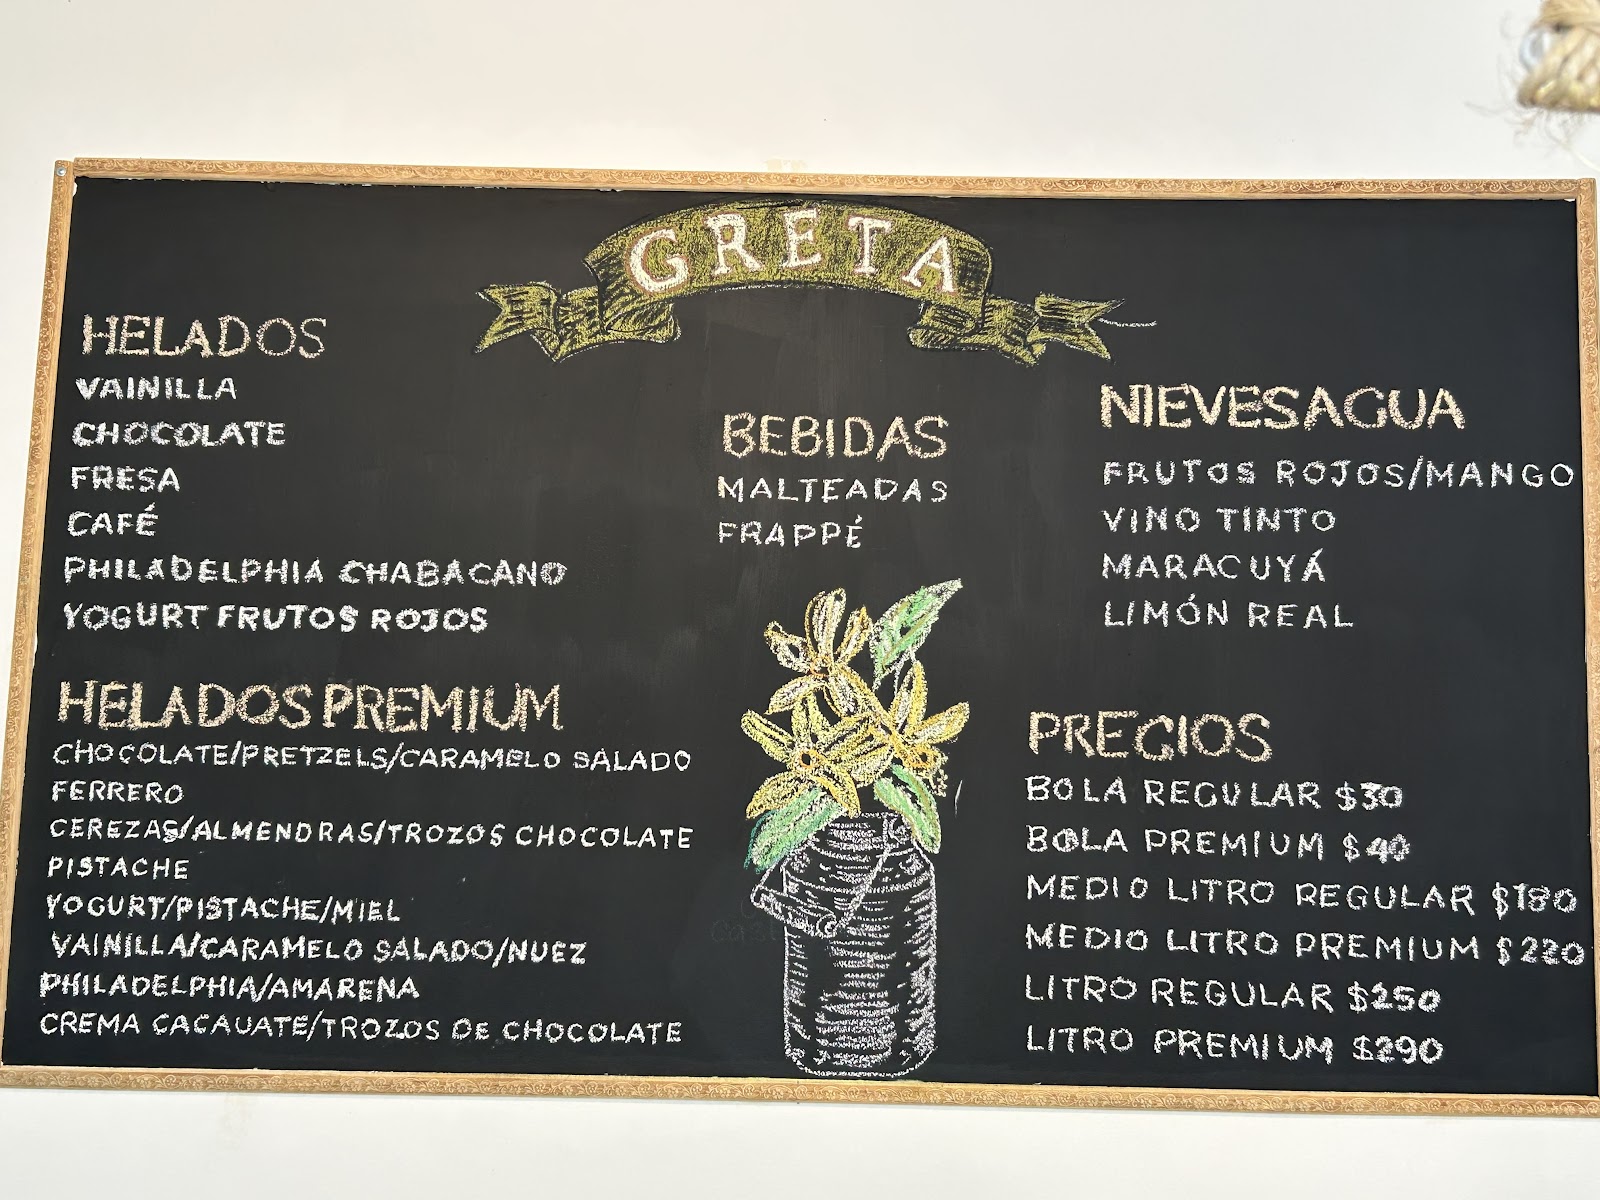 GRETA
HELADOS
VAINILLA
CHOCOLATE
FRESA
CAFÉ
PHILADELPHIA CHABACANO
YOGURT FRUTOS ROJOS
HELADOS PREMIUM
CHOCOLATE/PRETZELS/CARAMELO SALADO
FERRERO
CEREZAS/ALMENDRAS/TROZOS CHOCOLATE
PISTACHE
YOGURT/PISTACHE/MIEL
VAINILLA/CARAMELO SALADO/NUEZ
PHILADELPHIA/AMARENA
CREMA CACAUATE/TROZOS DE CHOCOLATE
BEBIDAS
MALTEADAS
FRAPPÉ
NIEVES AGUA
FRUTOS ROJOS/MANGO
VINO TINTO
MARACUYÁ
LIMÓN REAL
PRECIOS
BOLA REGULAR $30
BOLA PREMIUM $40
MEDIO LITRO REGULAR $180
MEDIO LITRO PREMIUM $220
LITRO REGULAR $250
LITRO PREMIUM $290